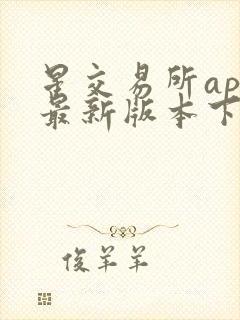 星交易所ap
最新版本下
俊羊羊